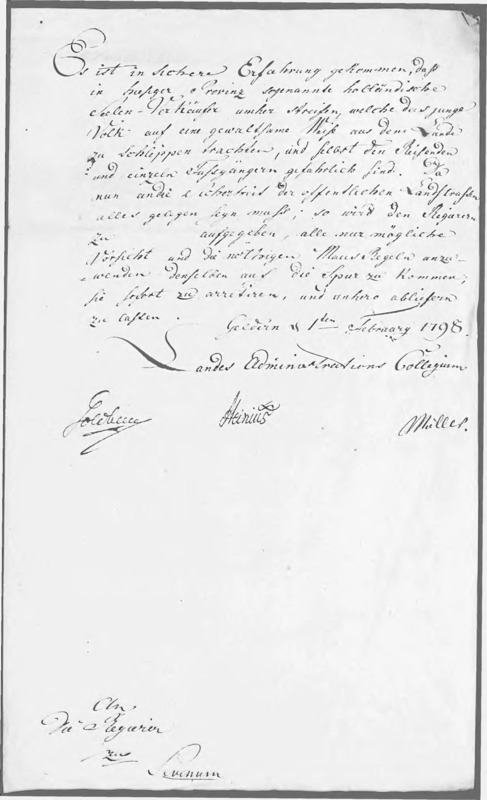 Es ist in sichere Erfahrung gekommen, daß
in hiesiger Provinz sogenannte holländische
Seelen-Verkäufer umher streifen, welche das junge
Volk auf eine gewaltsame Weise aus dem Lande
zu schleppen trachten, und selbst den Reisenden
und einzeln Fussgängern gefährlich sind. Da
nun an die Sicherheit der offentlichen Landstrassen
alles gelegen seyn muss; so wird den Regierern
zu aufgegeben, alle nur mögliche
Vorsicht und die nöthigen Maas Regeln anzu-
wenden denselben auf die Spur zu kommen,
sie sofort zu arretiren, und anhero abliefern
zu lassen.
Geldern d 1ten Februarÿ 1798.
Landes Administrations Collegium
Heinius
Müller.
An
Die Regierer
zu
Sevenum